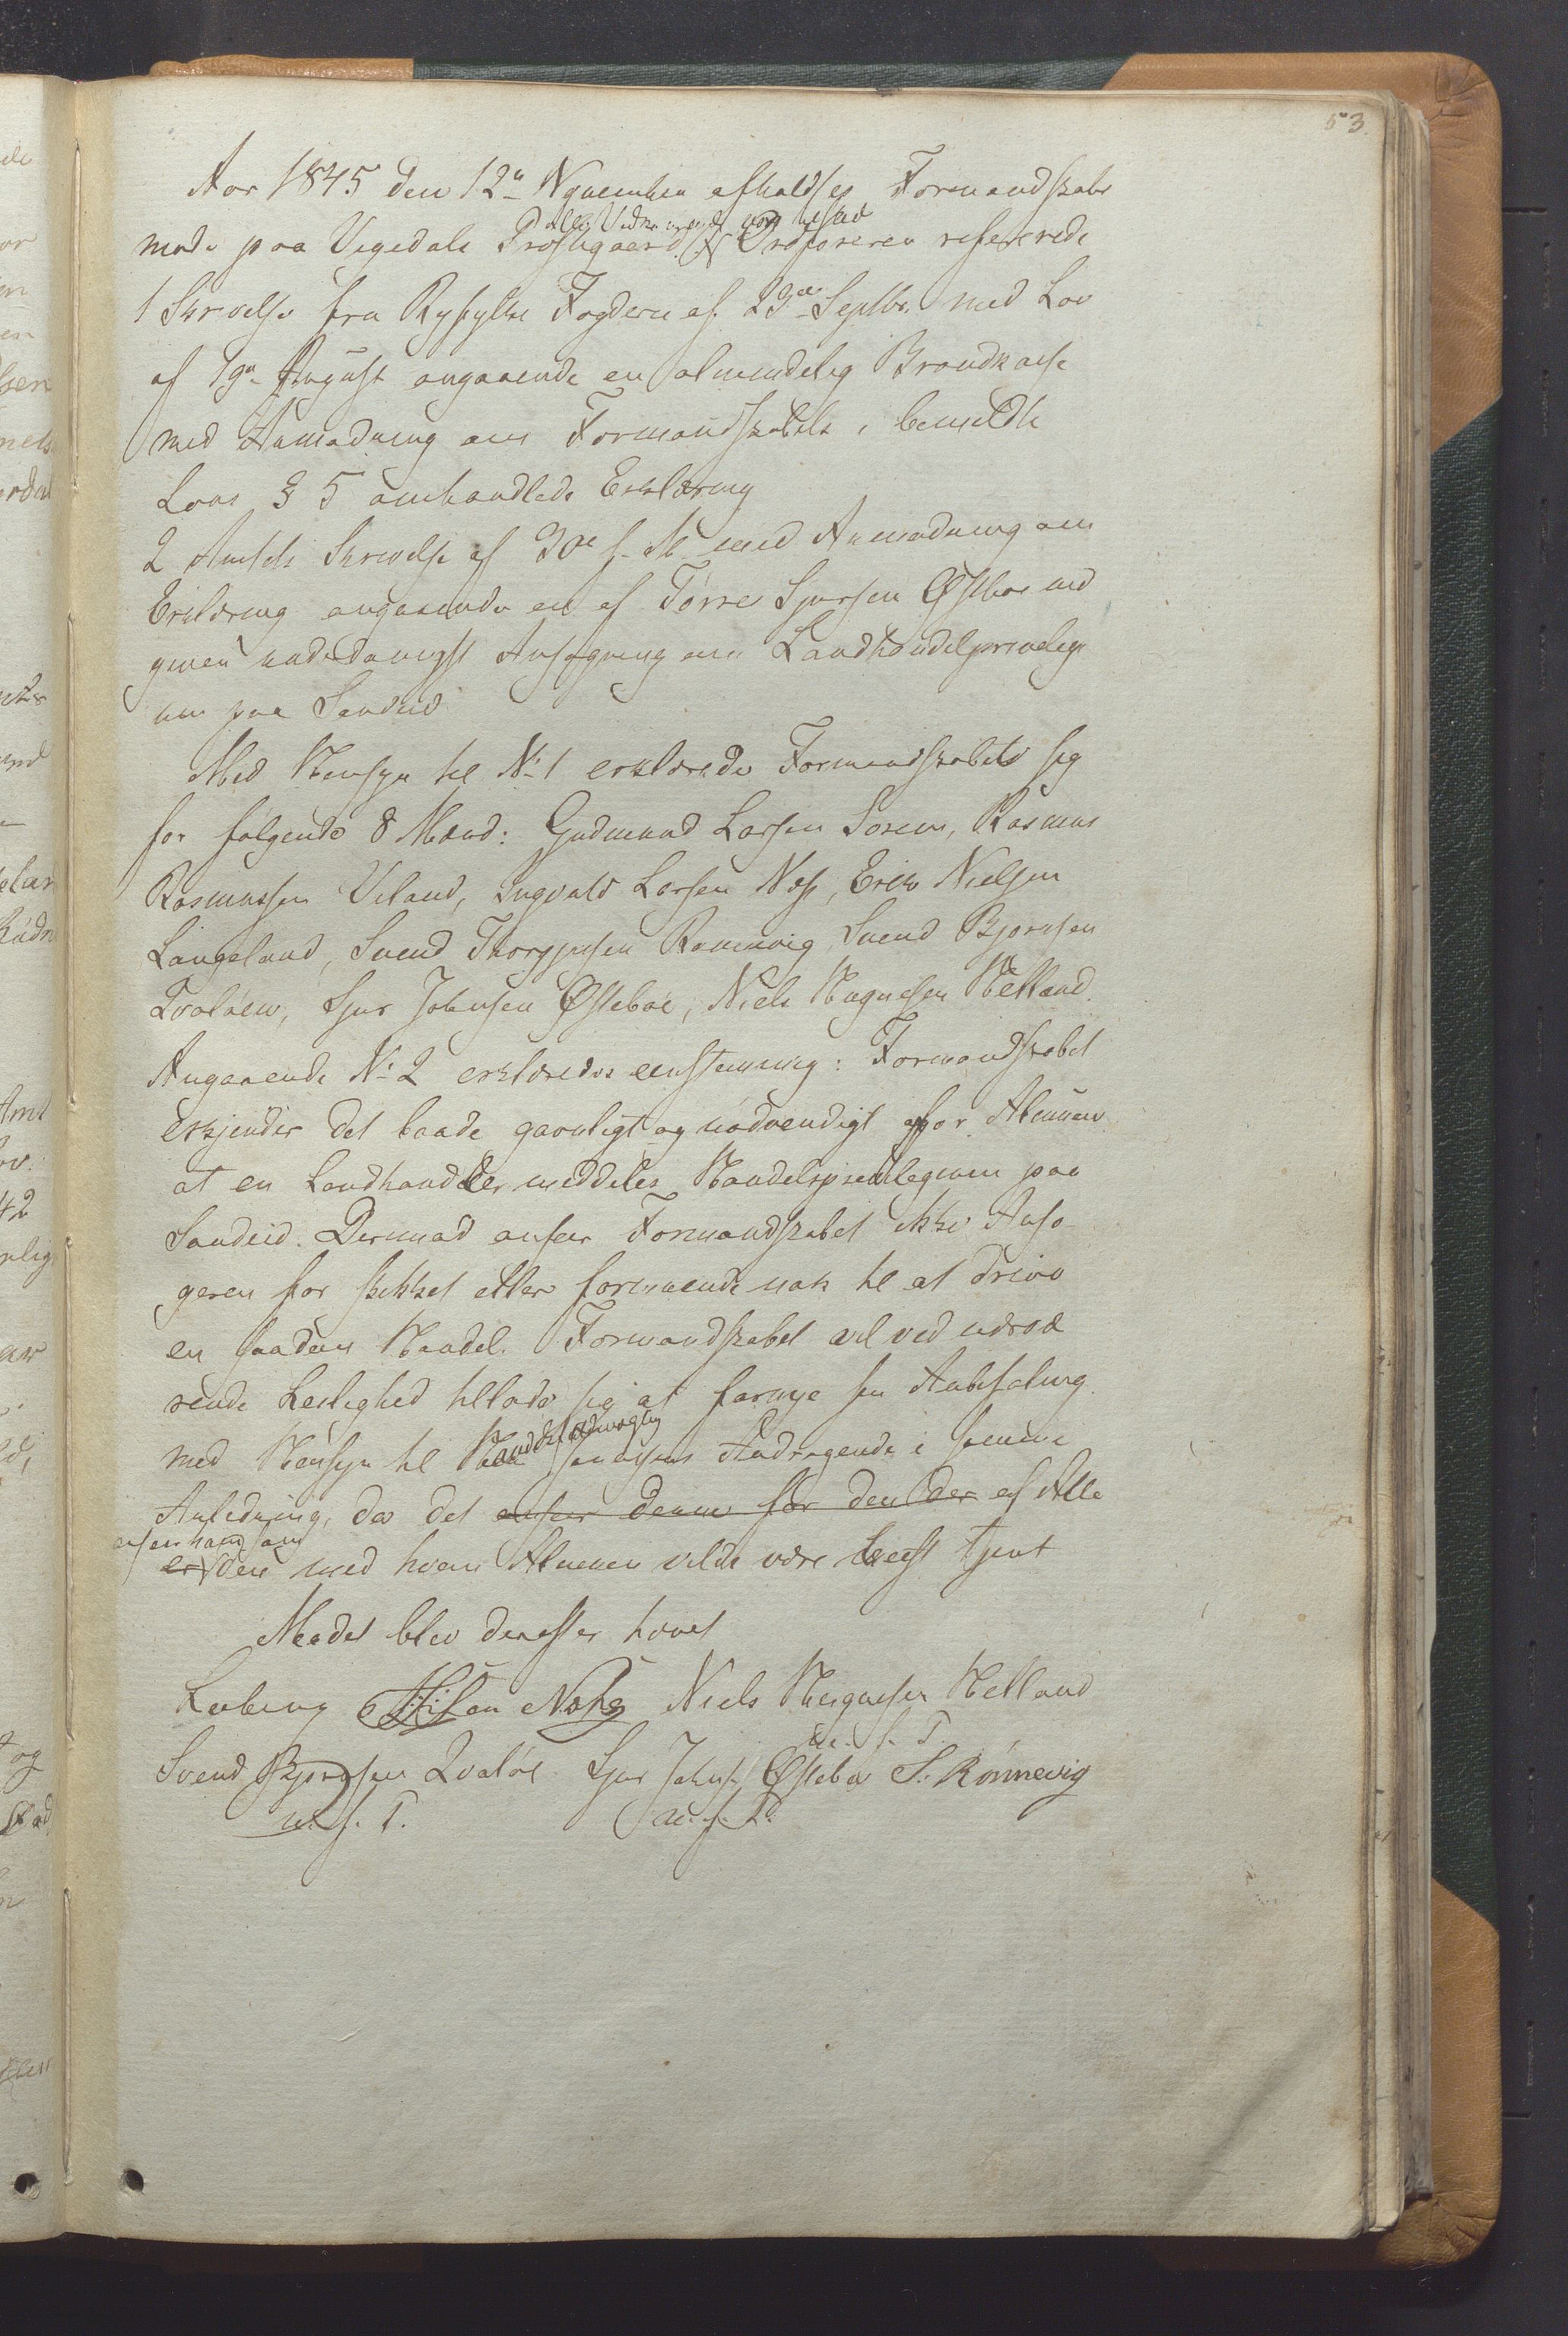 53
Aar 1845 den 12te November afholdtes Formandskabs
møde paa Vigedals Præstegaard. Ordføreren refererede
alle Vedkommende vare tilstæde
1 Skrivelse fra Ryfylke Fogderie af 23de Septbr. med Lov
af 19de August angaaende en almindelig Brandkasse
med Anmodning om Formandskabets i bemeldte
Lovs § 5 omhandlede Erklæring
2 Amtets Skrivelse af 30te f. M. med Anmodning om
Erklæring angaaende en af Torre Sjursen Østboe ind
given underdanigst Ansøgning om Landhandelprivilegi
um paa Sandeid
Med Hensyn til No 1 erklærede Formandskabet sig
for følgende 8 Mænd: Gudmund Larsen Sørem, Rasmus
Rasmussen Veland, Ingvald Larsen Næs, Erik Nielsen
Langeland, Svend Thorgersen Rønnevig, Svend Bjørnsen
Qvaløen, Sjur Johnsen Østebøe, Niels Magnesen Helland
Angaaende No 2 erklæredes eenstemmig: Formandskabet
erkjender det baade gavnligt og nødvendigt for Almuen
at en Landhandler meddeles Handelsprivilegium paa
Sandeid. Derimod anseer Formandskabet ikke Ansø
geren for skikket eller formuende nok til at drive
en saadan Handel. Formandskabet vil ved nærvæ
rende Leilighed tillade sig at fornye sin Anbefaling
med Hensyn til Handelsfuldmægtig Andragende i samme
Anledning, da det anseer denne for den der af Alle
anseer ham som
er den med hvem Almuen vilde være beest tjent
Mødet blev derefter hævet
Leeberg Næhs Niels Magnesen Helland
m. f. P.
Svend Bjørnsen Qvaløe Sjur Johns. Østebø S. Rønnevig
m. f. P. m. f. P.